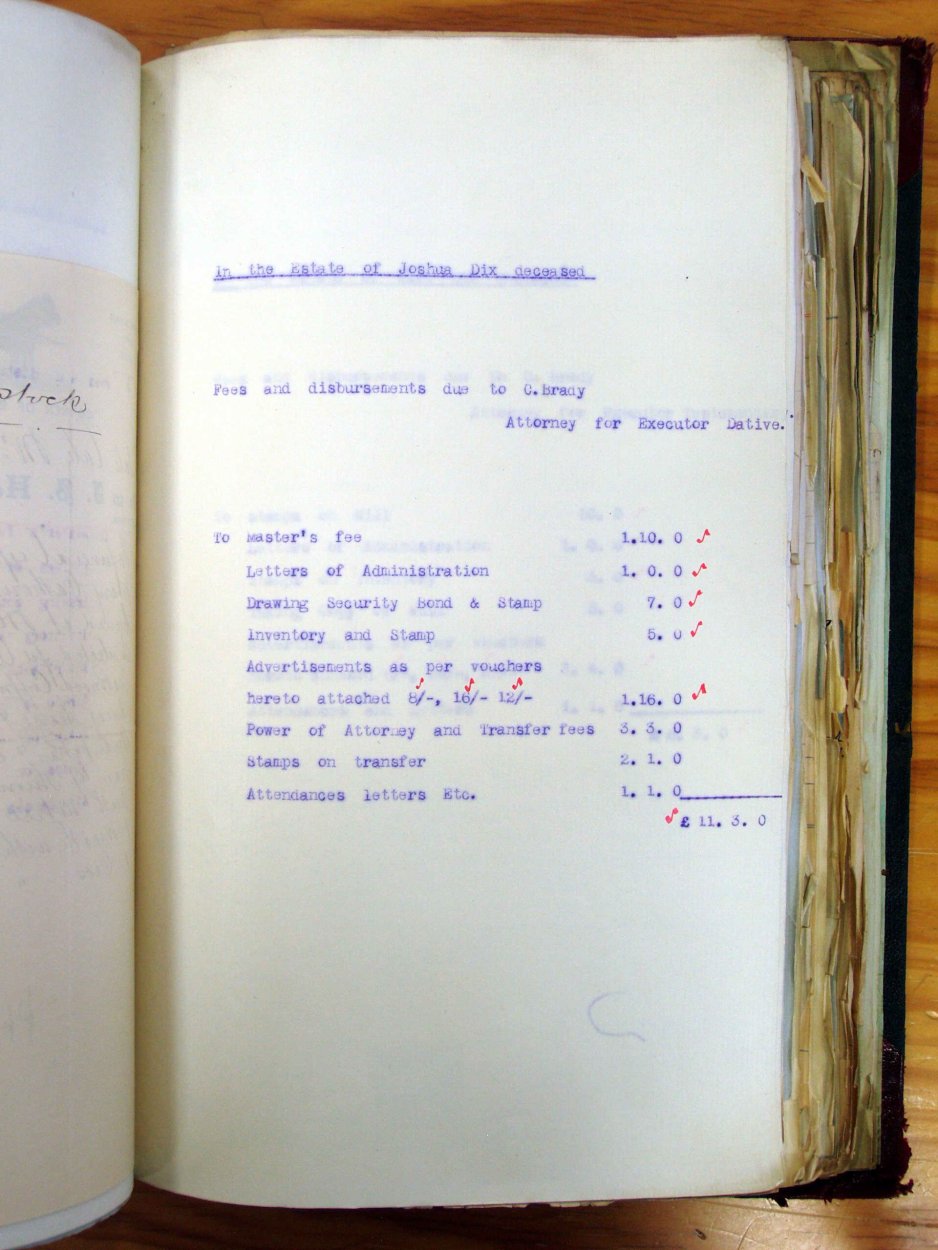 In the Estate of Joshua Dix deceased
Fees and disbursements due to C.Brady
Attorney for Executor Dative.
To Master's fee 1.10. 0
Letters of Administration 1. 0. 0
Drawing Security Bond & Stamp 7. 0
Inventory and Stamp 5. 0
Advertisements as per vouchers
hereto attached 8/-, 16/- 12/- 1.16. 0
Power of Attorney and Transfer fees 3. 3. 0
Stamps on transfer 2. 1. 0
Attendances letters Etc. 1. 1. 0
£ 11. 3. 0